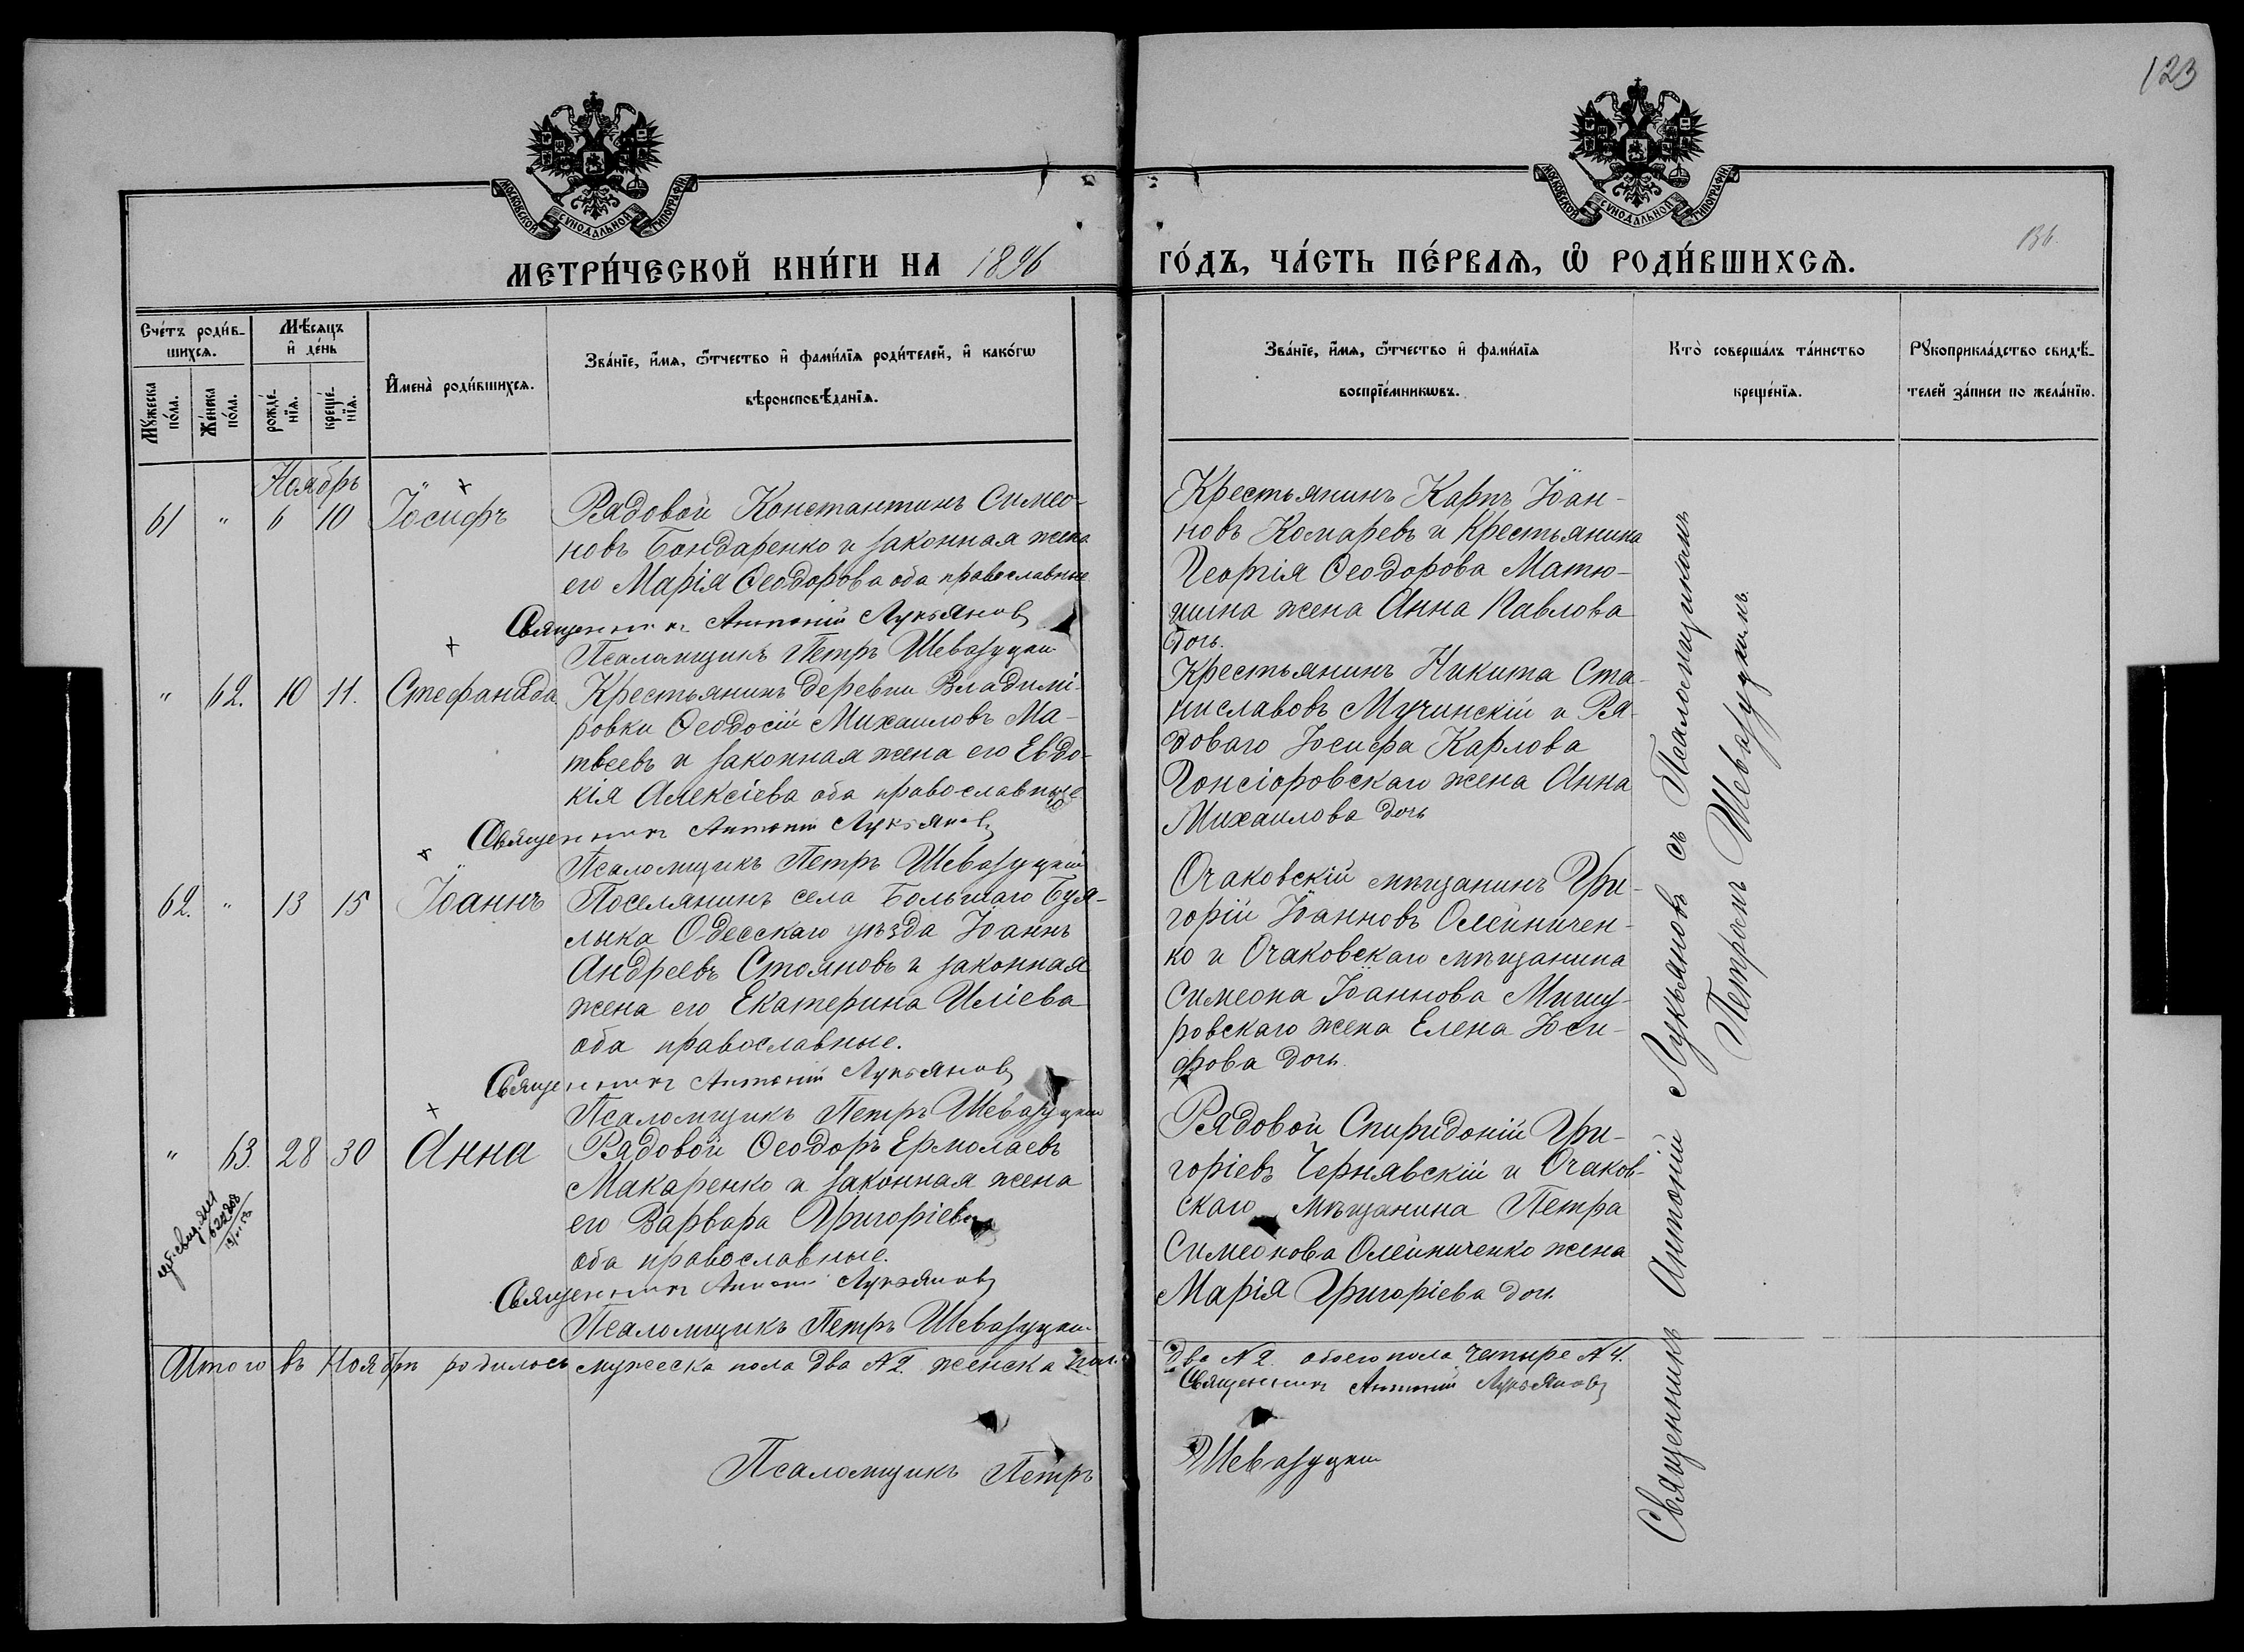 123
МОСКОВСКОЙ СѴНОДАЛЬНОЙ ТИПОГРАФІИ
МОСКОВСКОЙ СѴНОДАЛЬНОЙ ТИПОГРАФІИ
МЕТРИ́ЧЕСКОЙ КНИ́ГИ НА 1896
ГО́ДЪ, ЧА́СТЬ ПЕ́РВАѦ, Ѽ РОДИ́ВШИХСѦ.
136.
Сче́тъ роди́в-
шихсѧ.
Мꙋ́жеска по́ла.
Же́нска по́ла.
Мѣ́сѧцъ
и҆ де́нь
рожде́-
нїѧ.
креще́-
нїѧ.
И҆мена̀ роди́вшихсѧ.
Зва́нїе, и҆́мѧ, ѻ҆́тчество и҆ фами́лїѧ роди́телей, и҆ како́гѡ
вѣроисповѣ́данїѧ.
Зва́нїе, и҆́мѧ, ѻ҆́тчество и҆ фами́лїѧ
воспрїе́мникѡвъ.
Кто̀ соверша́лъ та́инство
креще́нїѧ.
Рꙋкоприкла́дство свидѣ́-
телей за́писи по жела́нїю.
Ноябрь
61 " 6 10 Іосифъ
Рядовой Константинъ Симео-
новъ Бондаренко и законная жена
его Марія Ѳеодорова оба православные
Священникъ Антоній Лукьяновъ
Псаломщикъ Петръ Шевазуцкій
Крестьянинъ Карпъ Іоан-
новъ Комаревъ и Крестьянина
Георгія Ѳеодорова Матю-
шина жена Анна Павлова
дочь.
" 62. 10 11. Стефанида
Крестьянинъ деревни Владимі-
ровки Ѳеодосій Михаиловъ Ма-
твеевъ и законная жена его Евдо-
кія Алексіева оба православные
Священникъ Антоній Лукьяновъ
Псаломщикъ Петръ Шевазуцкій
Крестьянинъ Никита Ста-
ниславовъ Мучинскій и Ря-
доваго Іосифа Карлова
Гонсіоровскаго жена Анна
Михаилова дочь
62. " 13 15 Іоаннъ
Поселянинъ села Большаго Буя-
лыка Одесскаго уѣзда Іоаннъ
Андреевъ Стояновъ и законная
жена его Екатерина Иліева
оба православные.
Священникъ Антоній Лукьяновъ
Псаломщикъ Петръ Шевазуцкій
Очаковскій мѣщанинъ Гри-
горій Іоанновъ Олейничен-
ко и Очаковскаго мѣщанина
Симеона Іоаннова Мишу-
ровскаго жена Елена Іоси-
фова дочь.
" 63. 28 30 Анна
Рядовой Ѳеодоръ Ермолаевъ
Макаренко и законная жена
его Варвара Григоріева
оба православные.
Священникъ Антоній Лукьяновъ
Псаломщикъ Петръ Шевазуцкій
Рядовой Спиридоній Гри-
горіевъ Чернявскій и Очаков-
скаго мѣщанина Петра
Симеонова Олейниченко жена
Марія Григоріева дочь.
Священникъ Антоній Лукьяновъ съ Псаломщикомъ
Петромъ Шевазуцкимъ.
Итого въ Ноябрѣ родилось мужеска пола два №2. женска пол.
два №2. обоего пола четыре №4.
Священникъ Антоній Лукьяновъ
Псаломщикъ Петръ
Шевазуцкій